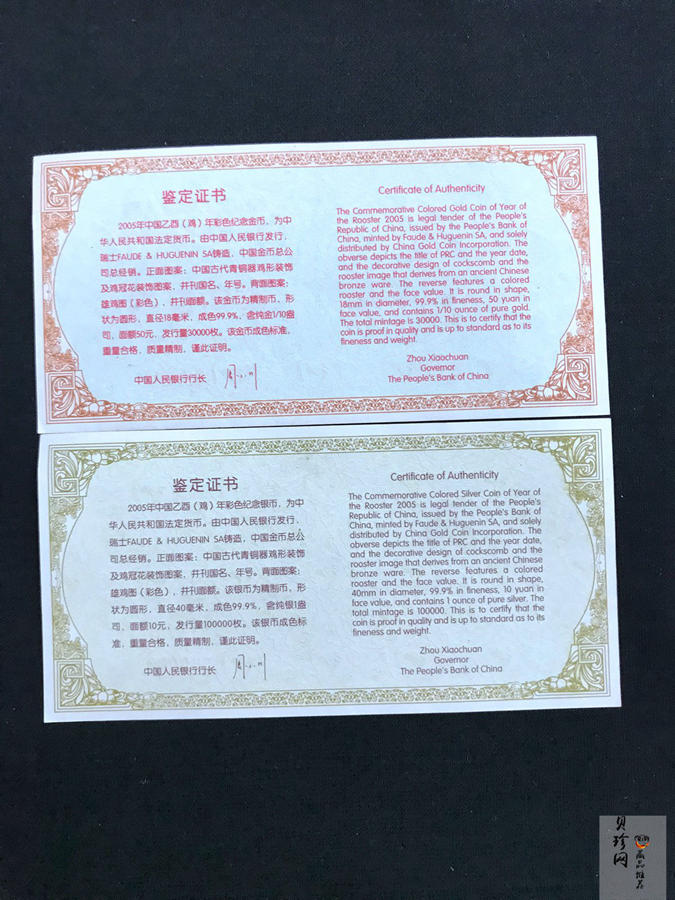 鉴定证书
2005年中国乙酉（鸡）年彩色纪念金币，为中
华人民共和国法定货币。由中国人民银行发行，
瑞士FAUDE & HUGUENIN SA铸造，中国金币总公
司总经销。正面图案：中国古代青铜器鸡形装饰
及鸡冠花装饰图案，并刊国名、年号。背面图案：
雄鸡图（彩色），并刊面额。该金币为精制币，形
状为圆形，直径18毫米，成色99.9%，含纯金1/10盎
司，面额50元，发行量30000枚。该金币成色标准，
重量合格，质量精制，谨此证明。
中国人民银行行长
Certificate of Authenticity
The Commemorative Colored Gold Coin of Year of
the Rooster 2005 is legal tender of the People's
Republic of China, issued by the People's Bank of
China, minted by Faude & Huguenin SA, and solely
distributed by China Gold Coin Incorporation. The
obverse depicts the title of PRC and the year date,
and the decorative design of cockscomb and the
rooster image that derives from an ancient Chinese
bronze ware. The reverse features a colored
rooster and the face value. It is round in shape,
18mm in diameter, 99.9% in fineness, 50 yuan in
face value, and contains 1/10 ounce of pure gold.
The total mintage is 30000. This is to certify that the
coin is proof in quality and is up to standard as to its
fineness and weight.
Zhou Xiaochuan
Governor
The People's Bank of China
鉴定证书
2005年中国乙酉（鸡）年彩色纪念银币，为中
华人民共和国法定货币。由中国人民银行发行，
瑞士FAUDE & HUGUENIN SA铸造，中国金币总公
司总经销。正面图案：中国古代青铜器鸡形装饰
及鸡冠花装饰图案，并刊国名、年号。背面图案：
雄鸡图（彩色），并刊面额。该银币为精制币，形
状为圆形，直径40毫米，成色99.9%，含纯银1盎
司，面额10元，发行量100000枚。该银币成色标
准，重量合格，质量精制，谨此证明。
中国人民银行行长
Certificate of Authenticity
The Commemorative Colored Silver Coin of Year of
the Rooster 2005 is legal tender of the People's
Republic of China, issued by the People's Bank of
China, minted by Faude & Huguenin SA, and solely
distributed by China Gold Coin Incorporation. The
obverse depicts the title of PRC and the year date,
and the decorative design of cockscomb and the
rooster image that derives from an ancient Chinese
bronze ware. The reverse features a colored
rooster and the face value. It is round in shape,
40mm in diameter, 99.9% in fineness, 10 yuan in
face value, and contains 1 ounce of pure silver. The
total mintage is 100000. This is to certify that the
coin is proof in quality and is up to standard as to its
fineness and weight.
Zhou Xiaochuan
Governor
The People's Bank of China
贝珍网
商品推荐